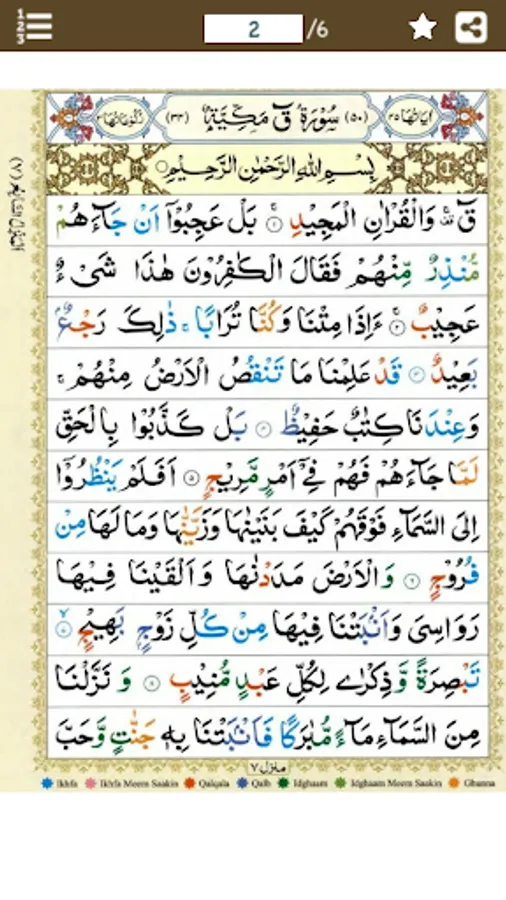 123
2 /6
اٰیاتها ۴۵ (۵۰) سُوْرَةُ قٓ مَكِّيَّةٌ (۳۴) رُكُوْعَاتُهَا ۳
بِسْمِ اللهِ الرَّحْمٰنِ الرَّحِيْمِ
قٓ ۚ وَالْقُرْاٰنِ الْمَجِيْدِ ۱ بَلْ عَجِبُوْۤا اَنْ جَآءَهُمْ
مُّنْذِرٌ مِّنْهُمْ فَقَالَ الْكٰفِرُوْنَ هٰذَا شَیْءٌ
عَجِيْبٌ ۲ ءَاِذَا مِتْنَا وَكُنَّا تُرَابًا ۚ ذٰلِكَ رَجْعٌۢ
بَعِيْدٌ ۳ قَدْ عَلِمْنَا مَا تَنْقُصُ الْاَرْضُ مِنْهُمْ ۚ
وَعِنْدَنَا كِتٰبٌ حَفِيْظٌ ۴ بَلْ كَذَّبُوْا بِالْحَقِّ
لَمَّا جَآءَهُمْ فَهُمْ فِیْۤ اَمْرٍ مَّرِيْجٍ ۵ اَفَلَمْ يَنْظُرُوْۤا
اِلَی السَّمَآءِ فَوْقَهُمْ كَيْفَ بَنَيْنٰهَا وَزَيَّنّٰهَا وَمَا لَهَا مِنْ
فُرُوْجٍ ۶ وَالْاَرْضَ مَدَدْنٰهَا وَاَلْقَيْنَا فِيْهَا
رَوَاسِیَ وَاَنْۢبَتْنَا فِيْهَا مِنْ كُلِّ زَوْجٍۭ بَهِيْجٍ ۷
تَبْصِرَةً وَّذِكْرٰی لِكُلِّ عَبْدٍ مُّنِيْبٍ ۸ وَنَزَّلْنَا
مِنَ السَّمَآءِ مَآءً مُّبٰرَكًا فَاَنْۢبَتْنَا بِهٖ جَنّٰتٍ وَّحَبَّ
منزل ۷
Ikhfa Ikhfa Meem Saakin Qalqala Qalb Idghaam Idghaam Meem Saakin Ghunna